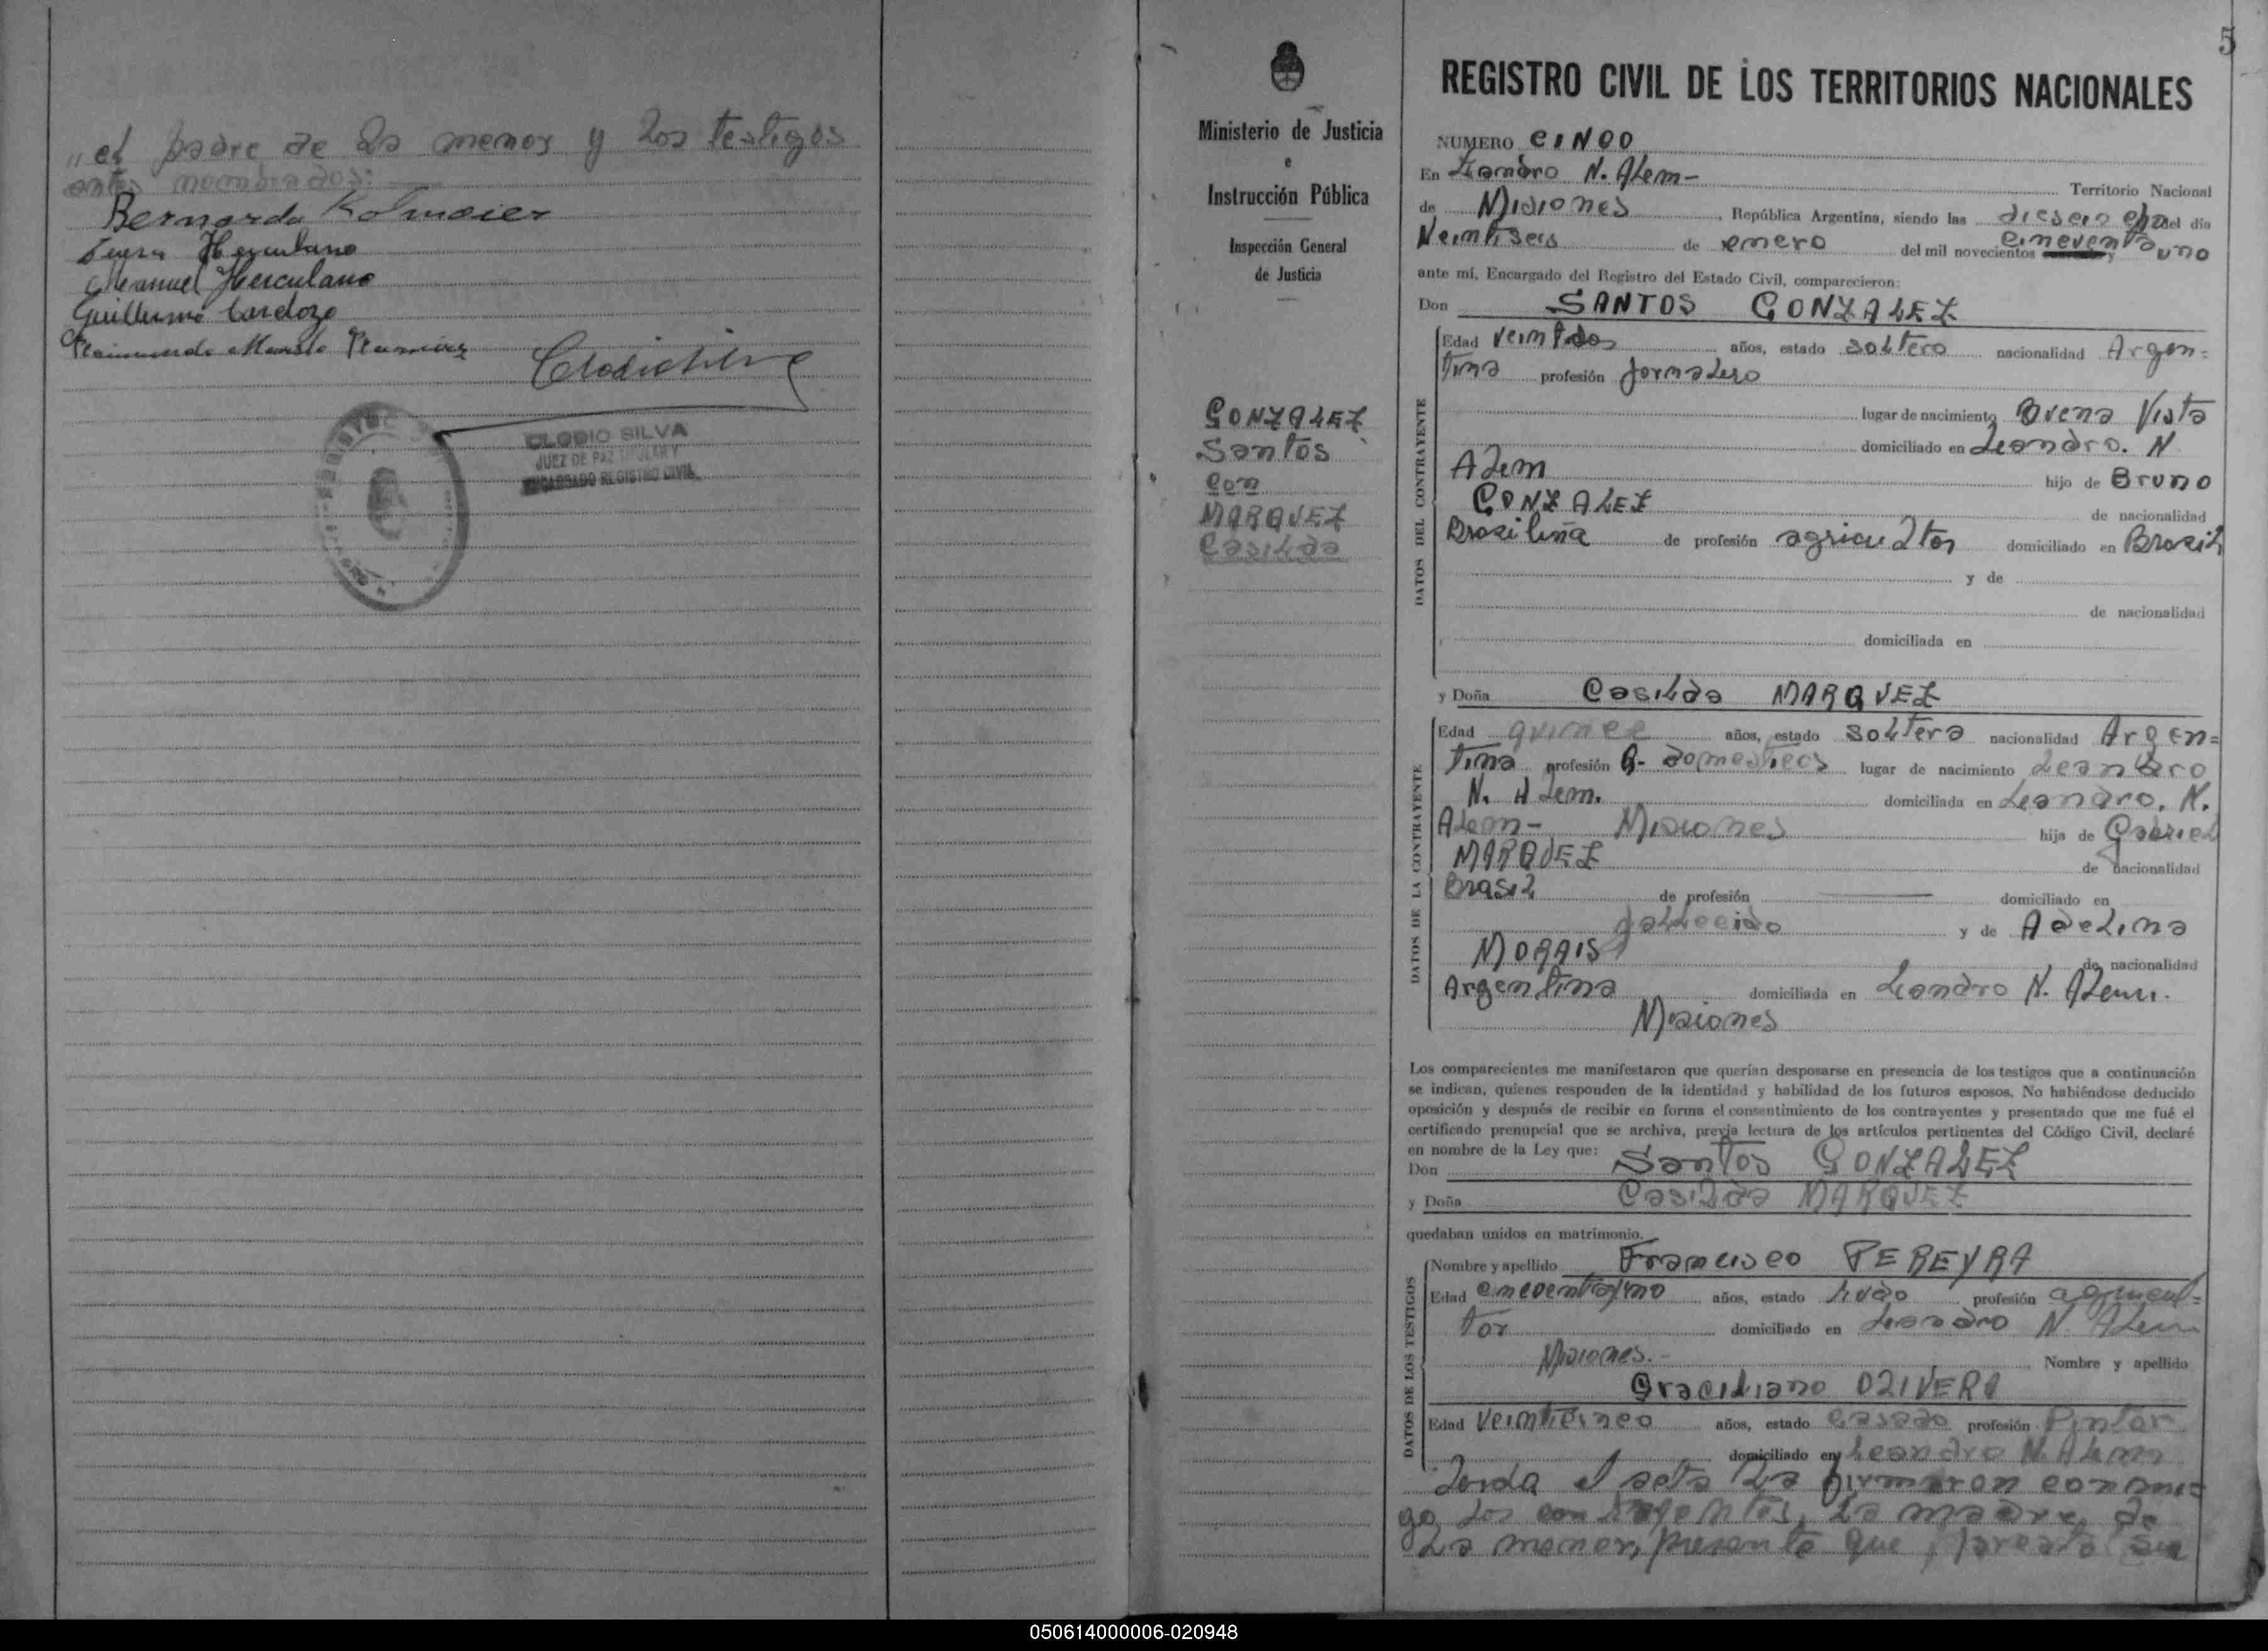 ,, el padre de la menor y los testigos
antes nombrados:
Bernardo
Herculano
Manuel Herculano
Guillermo Cardozo
Raimundo Ramirez
CLODIO SILVA
JUEZ DE PAZ TITULAR Y
ENCARGADO REGISTRO CIVIL
5
Ministerio de Justicia
e
Instrucción Pública
Inspección General
de Justicia
GONZALEZ
Santos
con
MARQUEZ
Casilda
REGISTRO CIVIL DE LOS TERRITORIOS NACIONALES
NUMERO CINCO
En Leandro N. Alem- Territorio Nacional
de Misiones, República Argentina, siendo las del día
Veintiseis de enero del mil novecientos cincuenta y uno
ante mí, Encargado del Registro del Estado Civil, comparecieron:
Don SANTOS GONZALEZ
DATOS DEL CONTRAYENTE
Edad veintidos años, estado soltero nacionalidad Argen=
tina profesión jornalero
lugar de nacimiento Buena Vista
domiciliado en Leandro. N
Alem hijo de Bruno
GONZALEZ de nacionalidad
Brasileña de profesión agricultor domiciliado en Brasil
y de
de nacionalidad
domiciliada en
y Doña Casilda MARQUEZ
DATOS DE LA CONTRAYENTE
Edad quince años, estado soltera nacionalidad Argen=
tina profesión Q- domesticos lugar de nacimiento Leandro
N. Alem. domiciliada en Leandro. N.
Alem- Misiones hija de Gabriel
MARQUEZ de nacionalidad
Brasil de profesión — domiciliado en
fallecido y de Adelina
MORAIS de nacionalidad
Argentina domiciliada en Leandro N. Alem.
Misiones
Los comparecientes me manifestaron que querían desposarse en presencia de los testigos que a continuación
se indican, quienes responden de la identidad y habilidad de los futuros esposos. No habiéndose deducido
oposición y después de recibir en forma el consentimiento de los contrayentes y presentado que me fué el
certificado prenupcial que se archiva, previa lectura de los artículos pertinentes del Código Civil, declaré
en nombre de la Ley que:
Don Santos GONZALEZ
y Doña Casilda MARQUEZ
quedaban unidos en matrimonio.
DATOS DE LOS TESTIGOS
Nombre y apellido Francisco PEREYRA
Edad cincuentayuno años, estado viudo profesión agricul=
tor domiciliado en Leandro N. Alem
Misiones.- Nombre y apellido
Graciliano OLIVERA
Edad veinticinco años, estado casado profesión Pintor
domiciliado en Leandro N. Alem
Leida el acta la firmaron conmi=
go los contrayentes, la madre de
la menor, presente que presta su
050614000006-020948